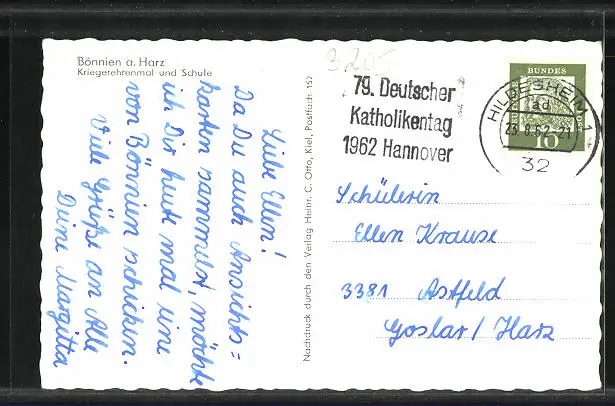 Bönnien a. Harz
Kriegerehrenmal und Schule
Liebe Ellen!
Da Du auch Ansichts=
karten sammelst, möchte
ich Dir heute mal eine
von Bönnien schicken.
Viele Grüße an Alle
Deine Margitta
Nachdruck durch den Verlag Heinr. C. Otto, Kiel, Postfach 152
3205
79. Deutscher
Katholikentag
1962 Hannover
HILDESHEIM 1
ad
23.8.62-21
32
BUNDES
10
Schülerin
Ellen Krause
3381 Astfeld
Goslar/Harz